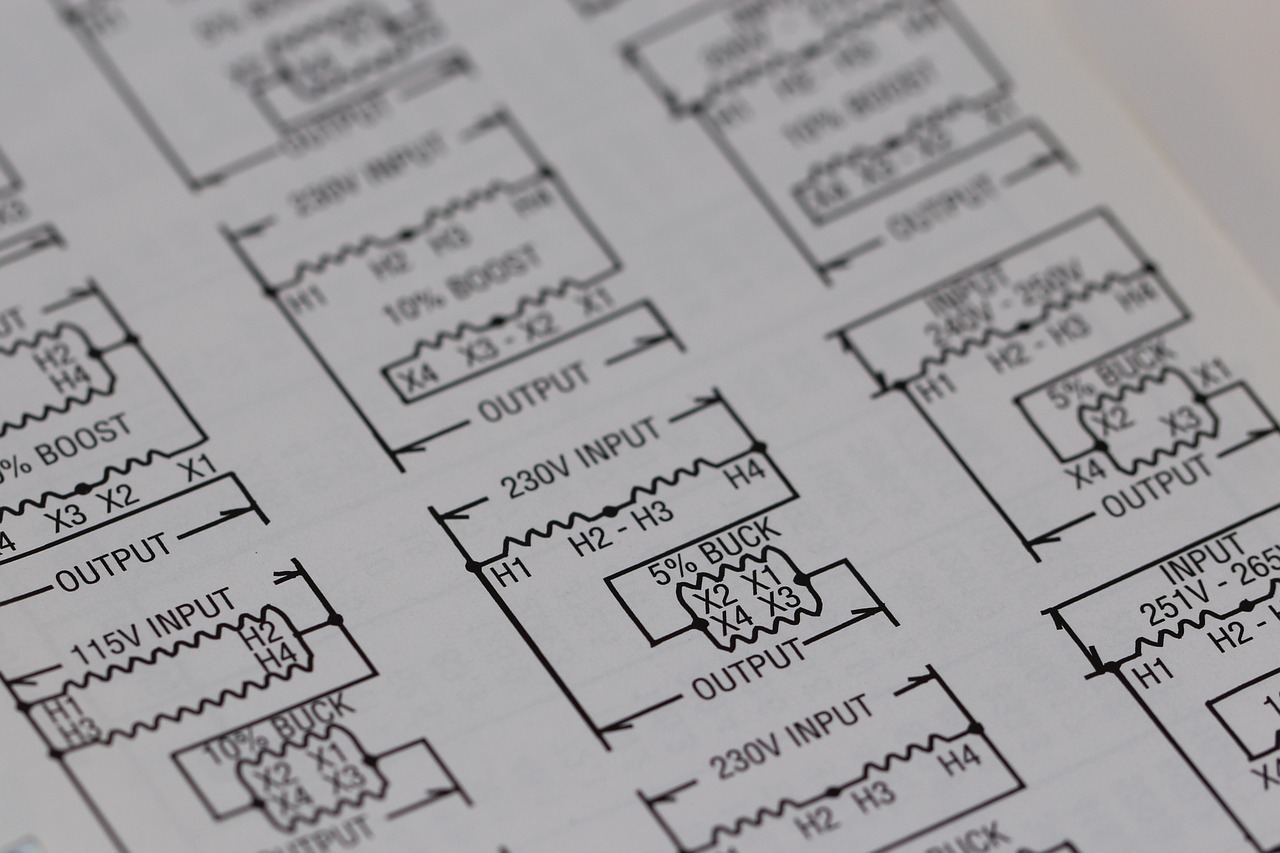 OUTPUT
230V INPUT
H2 H3 H4
H1
10% BOOST
X4 X3 - X2 X1
OUTPUT
10% BOOST
OUTPUT
H2
H4
% BOOST
X3 X2 X1
OUTPUT
230V INPUT
H1 H2 - H3 H4
5% BUCK
X2 X1
X4 X3
OUTPUT
INPUT
240V - 250V
H1 H2 - H3 H4
5% BUCK
X2 X3 X1
X4
OUTPUT
115V INPUT
H1 H2
H3 H4
10% BUCK
X2 X1
X4 X3
230V INPUT
H2 H3 H4
INPUT
251V - 265
H1 H2 -